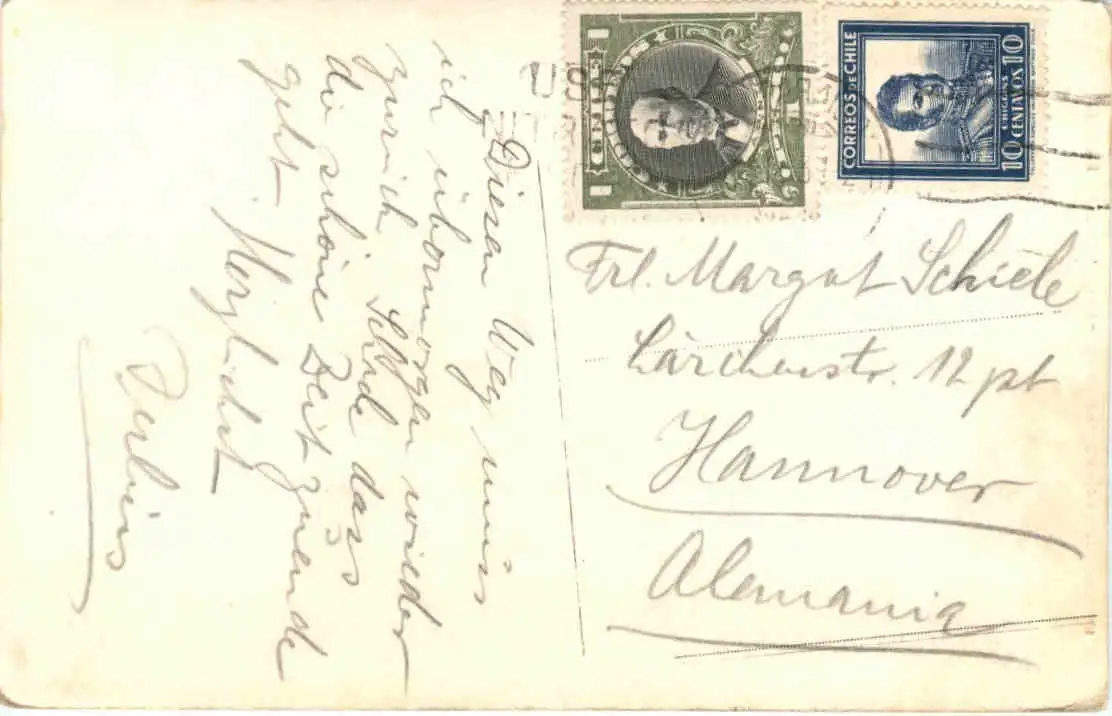 Diesen Weg muss
ich übermorgen wieder
zurück. Schade dass
die schöne Zeit zuende
geht. Herzlichst
CHILE
1
1
CORREOS DE CHILE
O'HIGGINS
10 CENTAVOS 10
Frl. Margot Schiele
Lärchenstr. 12 pt
Hannover
Alemania